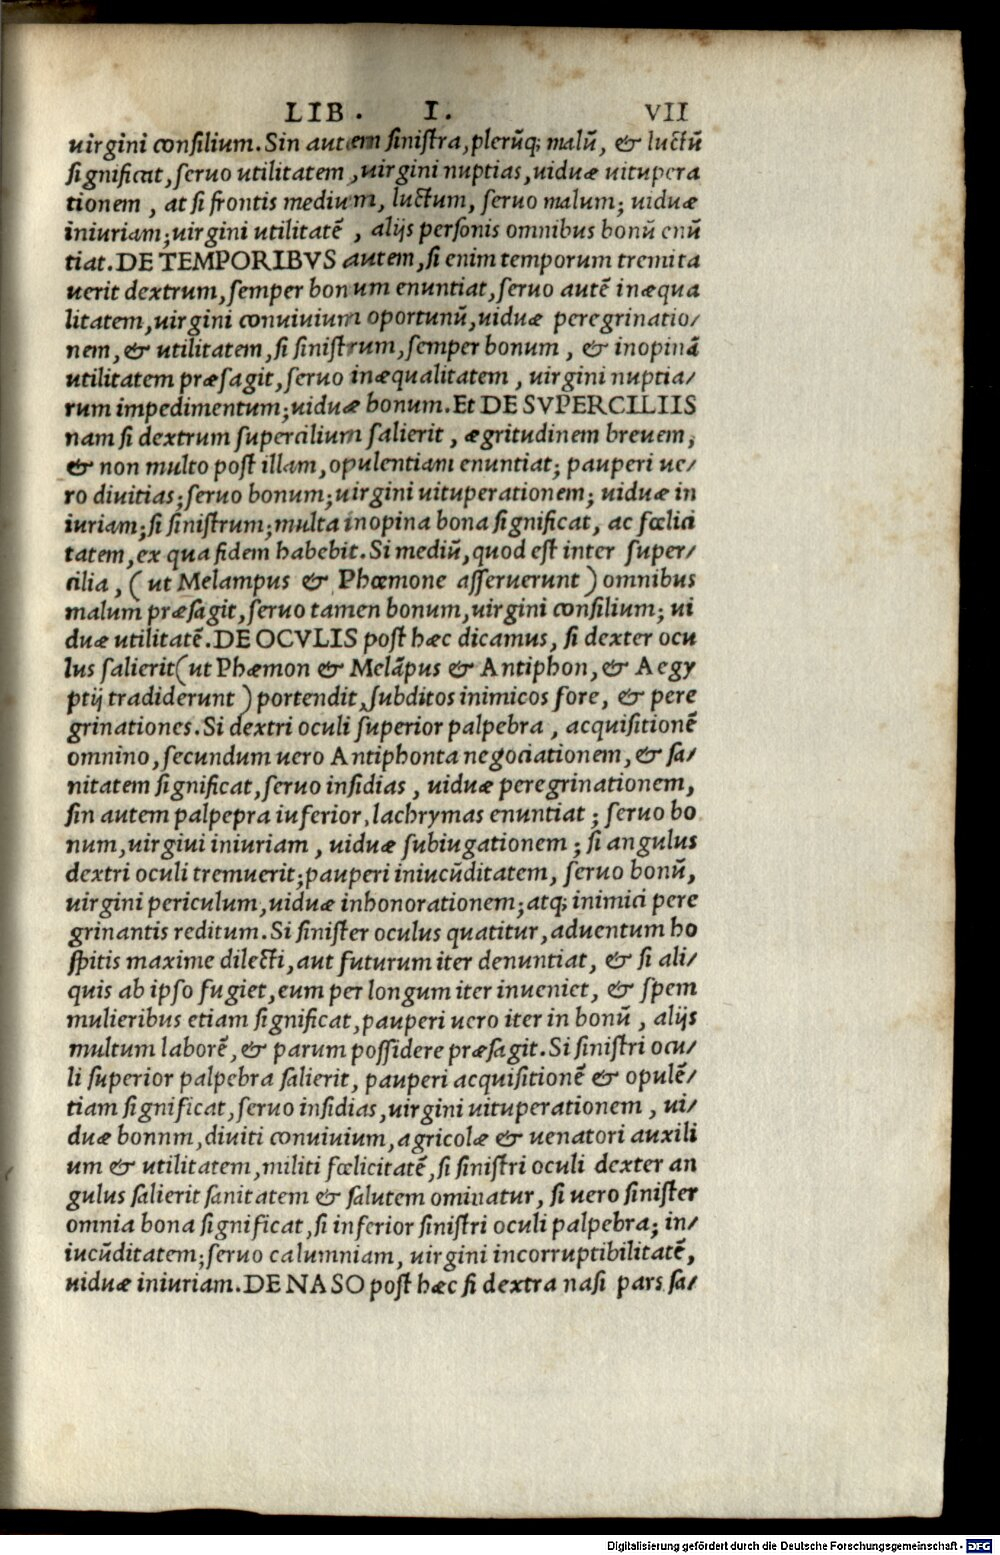 LIB. I. VII
uirgini consilium. Sin autem sinistra, plerũq; malũ, & luctũ
significat, seruo utilitatem, uirgini nuptias, uiduæ uitupera
tionem, at si frontis medium, luctum, seruo malum; uiduæ
iniuriam; uirgini utilitatẽ, alijs personis omnibus bonũ enũ
tiat. DE TEMPORIBVS autem, si enim temporum tremita
uerit dextrum, semper bonum enuntiat, seruo autẽ inæqua
litatem, uirgini conuiuium oportunũ, uiduæ peregrinatio/
nem, & utilitatem, si sinistrum, semper bonum, & inopinã
utilitatem præsagit, seruo inæqualitatem, uirgini nuptia/
rum impedimentum; uiduæ bonum. Et DE SVPERCILIIS
nam si dextrum supercilium salierit, ægritudinem breuem,
& non multo post illam, opulentiam enuntiat; pauperi ue/
ro diuitias; seruo bonum; uirgini uituperationem; uiduæ in
iuriam; si sinistrum; multa inopina bona significat, ac fœlici
tatem, ex qua fidem habebit. Si mediũ, quod est inter super/
cilia, (ut Melampus & Phœmone asseruerunt) omnibus
malum præsagit, seruo tamen bonum, uirgini consilium; ui
duæ utilitatẽ. DE OCVLIS post hæc dicamus, si dexter ocu
lus salierit (ut Phæmon & Melãpus & Antiphon, & Aegy
ptij tradiderunt) portendit, subditos inimicos fore, & pere
grinationes. Si dextri oculi superior palpebra, acquisitionẽ
omnino, secundum uero Antiphonta negociationem, & sa/
nitatem significat, seruo insidias, uiduæ peregrinationem,
sin autem palpepra iuferior, lachrymas enuntiat; seruo bo
num, uirgiui iniuriam, uiduæ subiugationem; si angulus
dextri oculi tremuerit; pauperi iniucũditatem, seruo bonũ,
uirgini periculum, uiduæ inhonorationem; atq; inimici pere
grinantis reditum. Si sinister oculus quatitur, aduentum ho
spitis maxime dilecti, aut futurum iter denuntiat, & si ali/
quis ab ipso fugiet, eum per longum iter inueniet, & spem
mulieribus etiam significat, pauperi uero iter in bonũ, alijs
multum laborẽ, & parum possidere præsagit. Si sinistri ocu/
li superior palpebra salierit, pauperi acquisitionẽ & opulẽ/
tiam significat, seruo insidias, uirgini uituperationem, ui/
duæ bonnm, diuiti conuiuium, agricolæ & uenatori auxili
um & utilitatem, militi fœlicitatẽ, si sinistri oculi dexter an
gulus salierit sanitatem & salutem ominatur, si uero sinister
omnia bona significat, si inferior sinistri oculi palpebra; in/
iucũditatem; seruo calumniam, uirgini incorruptibilitatẽ,
uiduæ iniuriam. DE NASO post hæc si dextra nasi pars sa/
Digitalisierung gefördert durch die Deutsche Forschungsgemeinschaft - DFG